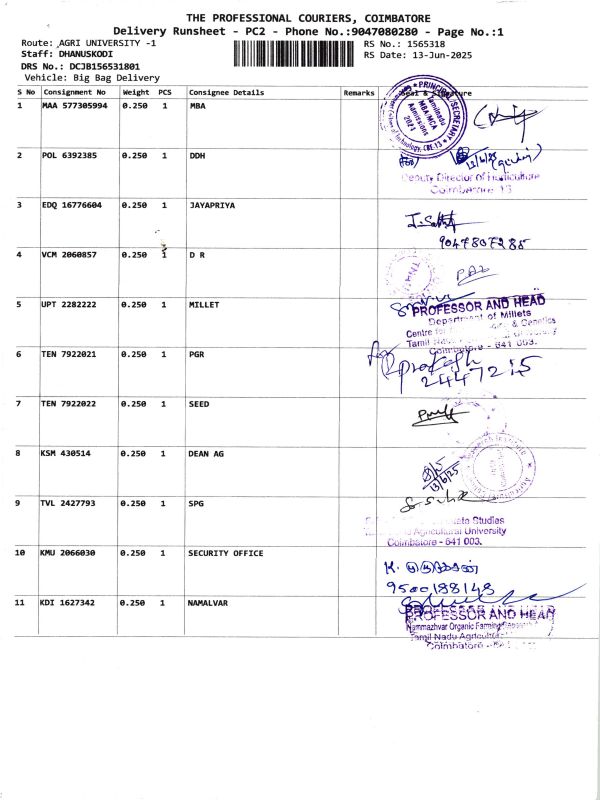 THE PROFESSIONAL COURIERS, COIMBATORE
Delivery Runsheet - PC2 - Phone No.:9047080280 - Page No.:1
Route: AGRI UNIVERSITY -1
RS No.: 1565318
Staff: DHANUSKODI
RS Date: 13-Jun-2025
DRS No.: DCJB156531801
Vehicle: Big Bag Delivery
S No Consignment No Weight PCS Consignee Details Remarks Seal & Signature
1 MAA 577305994 0.250 1 MBA
PRINCIPAL/SECRETARY
Tamilnadu
MBA/MCA
Admissions
2024
of Technology, CBE-13
2 POL 6392385 0.250 1 DDH
Deputy Director of Horticulture
Coimbatore 13
3 EDQ 16776604 0.250 1 JAYAPRIYA
9047807285
4 VCM 2060857 0.250 1 D R
5 UPT 2282222 0.250 1 MILLET
PROFESSOR AND HEAD
Department of Millets
Centre for & Genetics
Tamil 641 003.
Coimbatore
6 TEN 7922021 0.250 1 PGR
Prakash
2447215
7 TEN 7922022 0.250 1 SEED
8 KSM 430514 0.250 1 DEAN AG
13/6/25
9 TVL 2427793 0.250 1 SPG
Studies
Agricultural University
Coimbatore - 641 003.
10 KMU 2066030 0.250 1 SECURITY OFFICE
9500188148
11 KDI 1627342 0.250 1 NAMALVAR
PROFESSOR AND HEAD
Nammazhvar Organic Farming
Tamil Nadu
Coimbatore